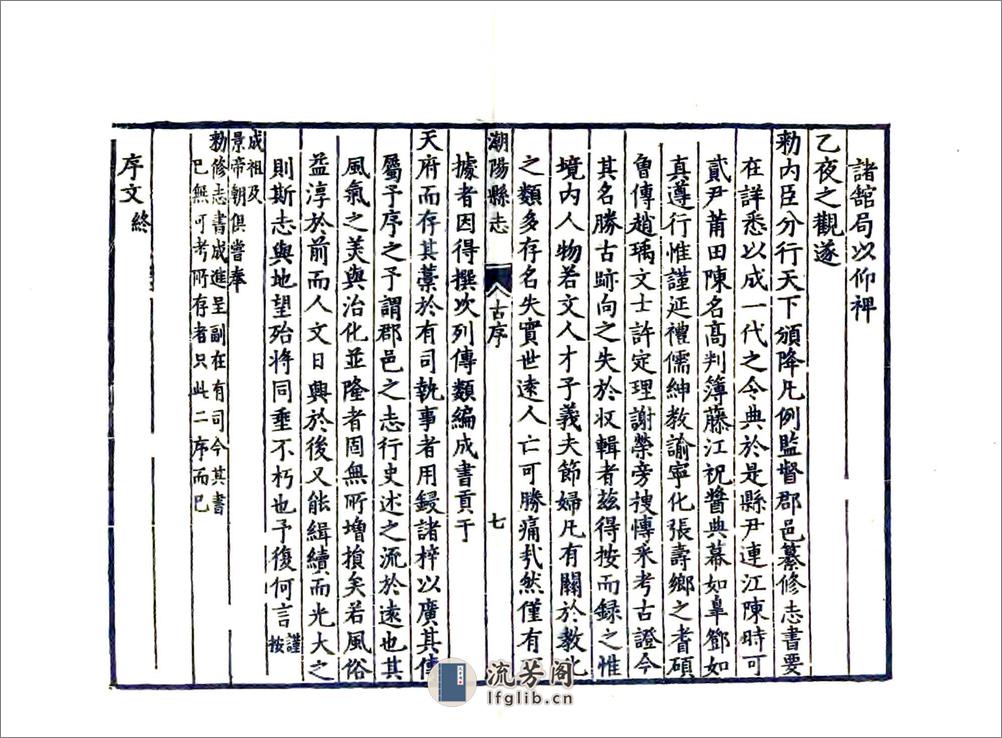 諸舘局以仰裨
乙夜之觀遂
勑內臣分行天下頒降凡例監督郡邑纂修志書要
在詳悉以成一代之令典於是縣尹連江陳時可
貳尹莆田陳名高判簿藤江祝醬典幕如臯鄧如
真遵行惟謹延禮儒紳教諭寧化張壽鄉之耆碩
魯傳趙瑀文士許定理謝榮旁搜博采考古證今
其名勝古跡向之失於收輯者玆得按而録之惟
境內人物若文人才子義夫節婦凡有關於教化
之類多存名失實世遠人亡可勝痛㢤然僅有
潮陽縣志
古序
七
據者因得撰次列傳類編成書貢于
天府而存其藁於有司執事者用鋟諸梓以廣其傳
屬予序之予謂郡邑之志行史述之流於遠也其
風氣之美與治化並隆者固無所增損矣若風俗
益淳於前而人文日興於後又能緝續而光大之
則斯志與地望殆將同垂不朽也予復何言謹按
成祖及
景帝朝俱嘗奉
勑修志書成進呈副在有司今其書
已無可考所存者只此二序而已
序文終
流芳阁
lfglib.cn